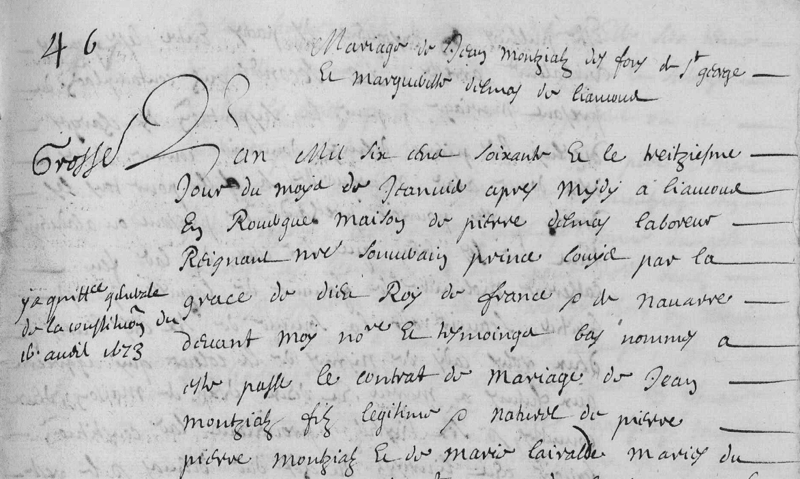 46
Mariage de Jean montzials des fons de st george
Et marguditte delmas de liaucous
Grosse
L'an Mil six cens soixante Et le treitziesme
Jour du moys de Jeanvié apres mydy a liaucous
En Rouergue maison de pierre delmas laboreur
Reignant nre souverain prince louys par la
grace de dieu Roy de france & de navarre
devant moy nore Et tesmoings bas nommes a
este passe le contrat de Mariage de Jean
montzials filz legitime & naturel de pierre
pierre montzials Et de marie lairalde maries du
y a quittce generale
de la constituon du
16 avril 1673